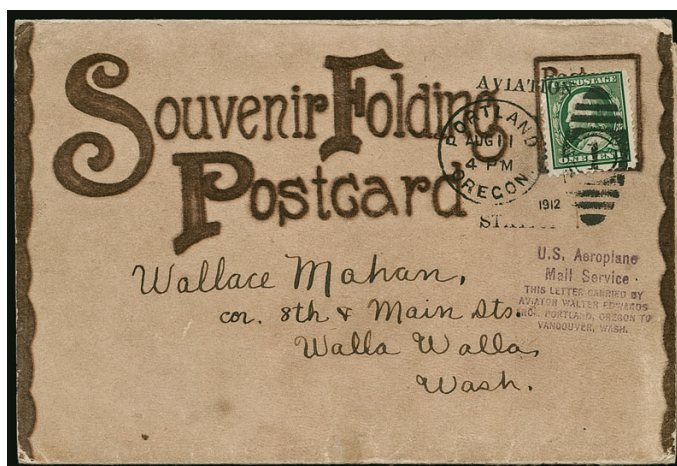 Souvenir Folding
Postcard
AVIATION
PORTLAND
AUG 11
4 PM
OREGON
1912
POSTAGE
ONE CENT
U.S. Aeroplane
Mail Service
THIS LETTER CARRIED BY
AVIATOR WALTER EDWARDS
FROM PORTLAND, OREGON TO
VANCOUVER, WASH.
Wallace Mahan,
cor. 8th & Main Sts.
Walla Walla,
Wash.